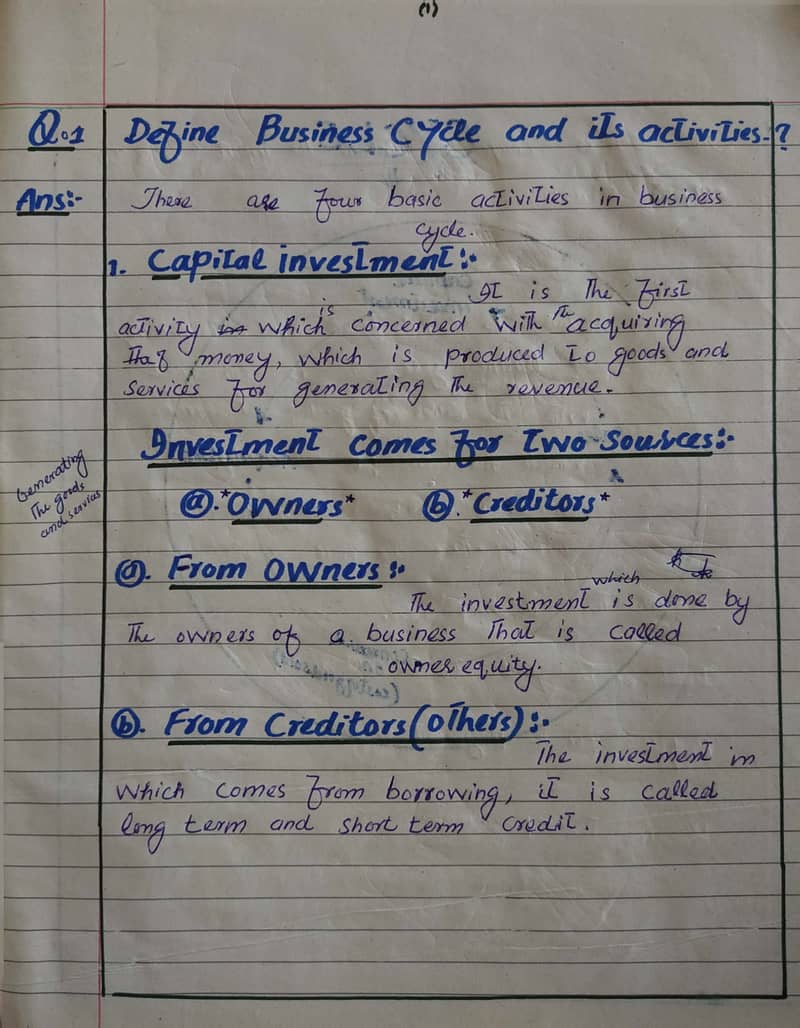 (1)
Q.1 Define Business Cycle and its activities.?
Ans:- There are four basic activities in business
cycle.
1. Capital investment:-
It is the first
activity is which concerned with the acquiring
money, which is produced to goods and
services for generating the revenue.
Investment comes for two sources:-
Generating
the goods
and services
(a). *Owners* (b). *Creditors*
(a). From Owners:-
The investment which is done by
the owners of a business that is called
owner equity.
(b). From Creditors (others):-
The investment in
which comes from borrowing, it is called
long term and short term credit.